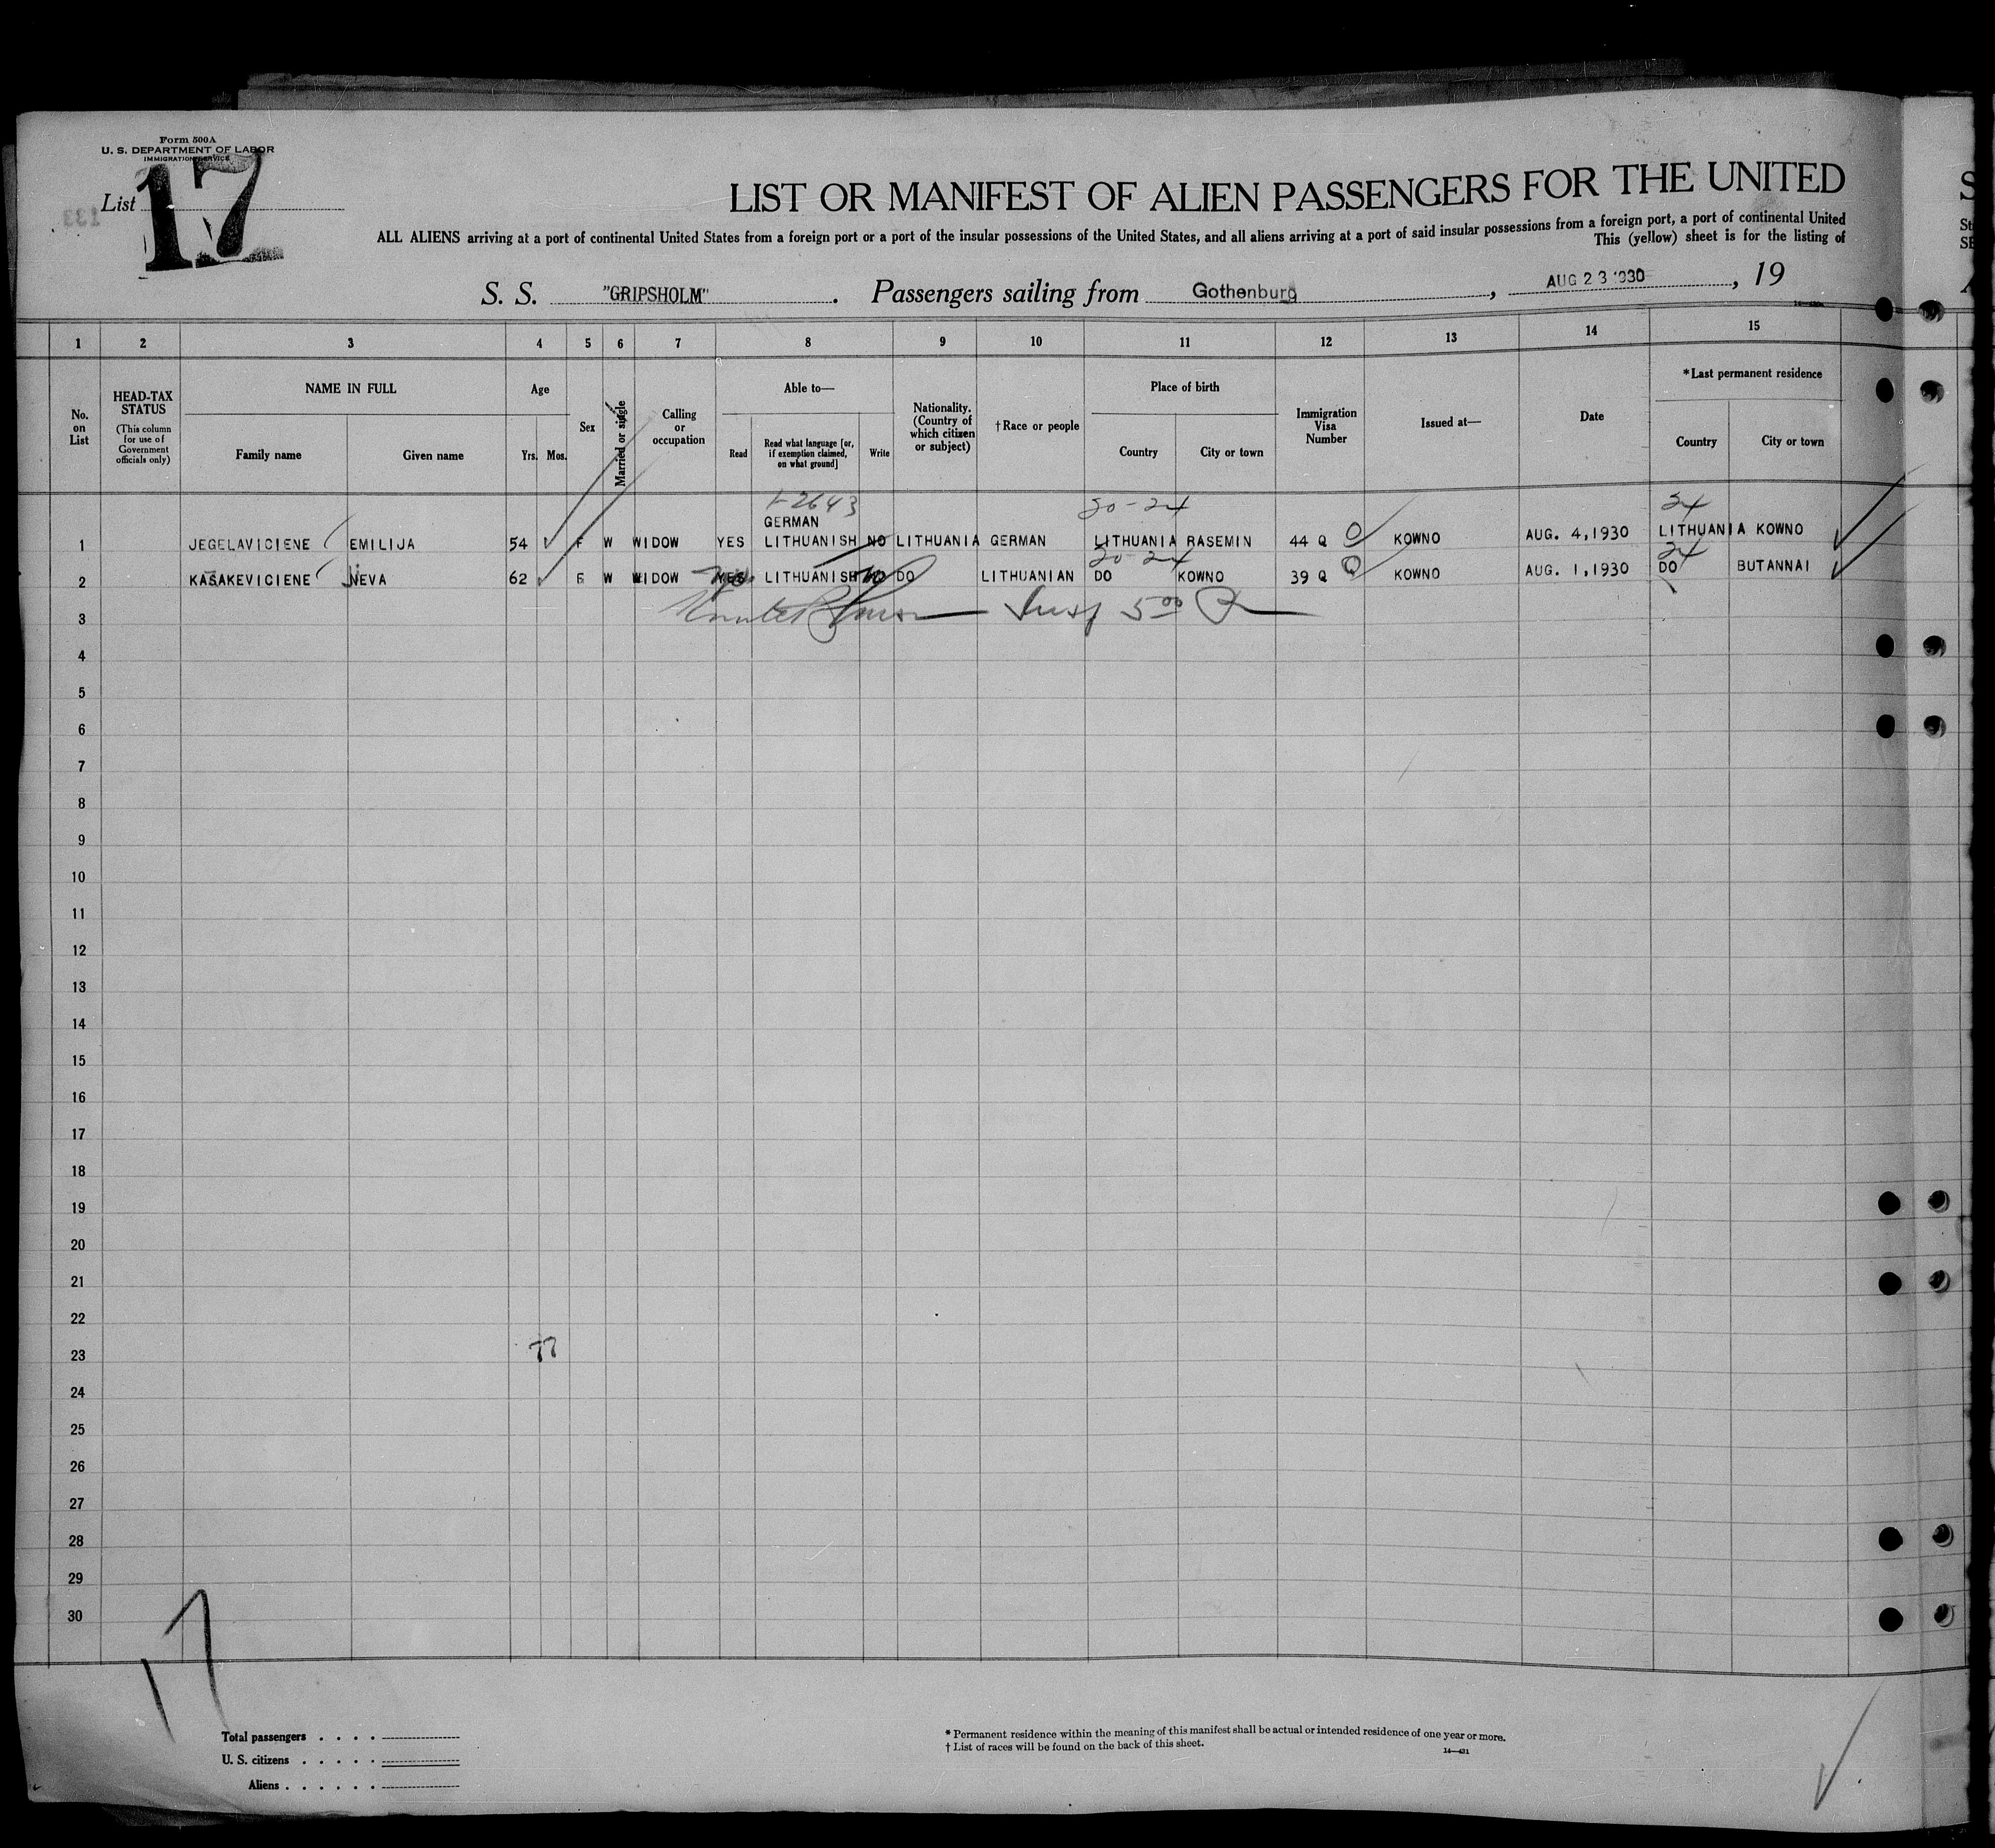 Form 500A
U. S. DEPARTMENT OF LABOR
IMMIGRATION SERVICE
List 17
LIST OR MANIFEST OF ALIEN PASSENGERS FOR THE UNITED
ALL ALIENS arriving at a port of continental United States from a foreign port or a port of the insular possessions of the United States, and all aliens arriving at a port of said insular possessions from a foreign port, a port of continental United
This (yellow) sheet is for the listing of
S. S. "GRIPSHOLM". Passengers sailing from Gothenburg, AUG 23 1930, 19
1 2 3 4 5 6 7 8 9 10 11 12 13 14 15
No. on List
HEAD-TAX STATUS
(This column for use of Government officials only)
NAME IN FULL
Family name Given name
Age
Yrs. Mos.
Sex
Married or single
Calling or occupation
Able to—
Read Read what language [or, if exemption claimed, on what ground] Write
Nationality. (Country of which citizen or subject)
†Race or people
Place of birth
Country City or town
Immigration Visa Number
Issued at—
Date
*Last permanent residence
Country City or town
1-2643 20-24 24
GERMAN
1 JEGELAVICIENE EMILIJA 54 F W WIDOW YES LITHUANISH NO LITHUANIA GERMAN LITHUANIA RASEMIN 44 Q KOWNO AUG. 4,1930 LITHUANIA KOWNO
20-24 24
2 KASAKEVICIENE NEVA 62 F W WIDOW YES LITHUANISH NO DO LITHUANIAN DO KOWNO 39 Q KOWNO AUG. 1,1930 DO BUTANNAI
3 Insp 5⁰⁰
4
5
6
7
8
9
10
11
12
13
14
15
16
17
18
19
20
21
22
23
24
25
26
27
28
29
30
17
Total passengers . . . .
U. S. citizens . . . . .
Aliens . . . . . .
* Permanent residence within the meaning of this manifest shall be actual or intended residence of one year or more.
† List of races will be found on the back of this sheet.
14—431